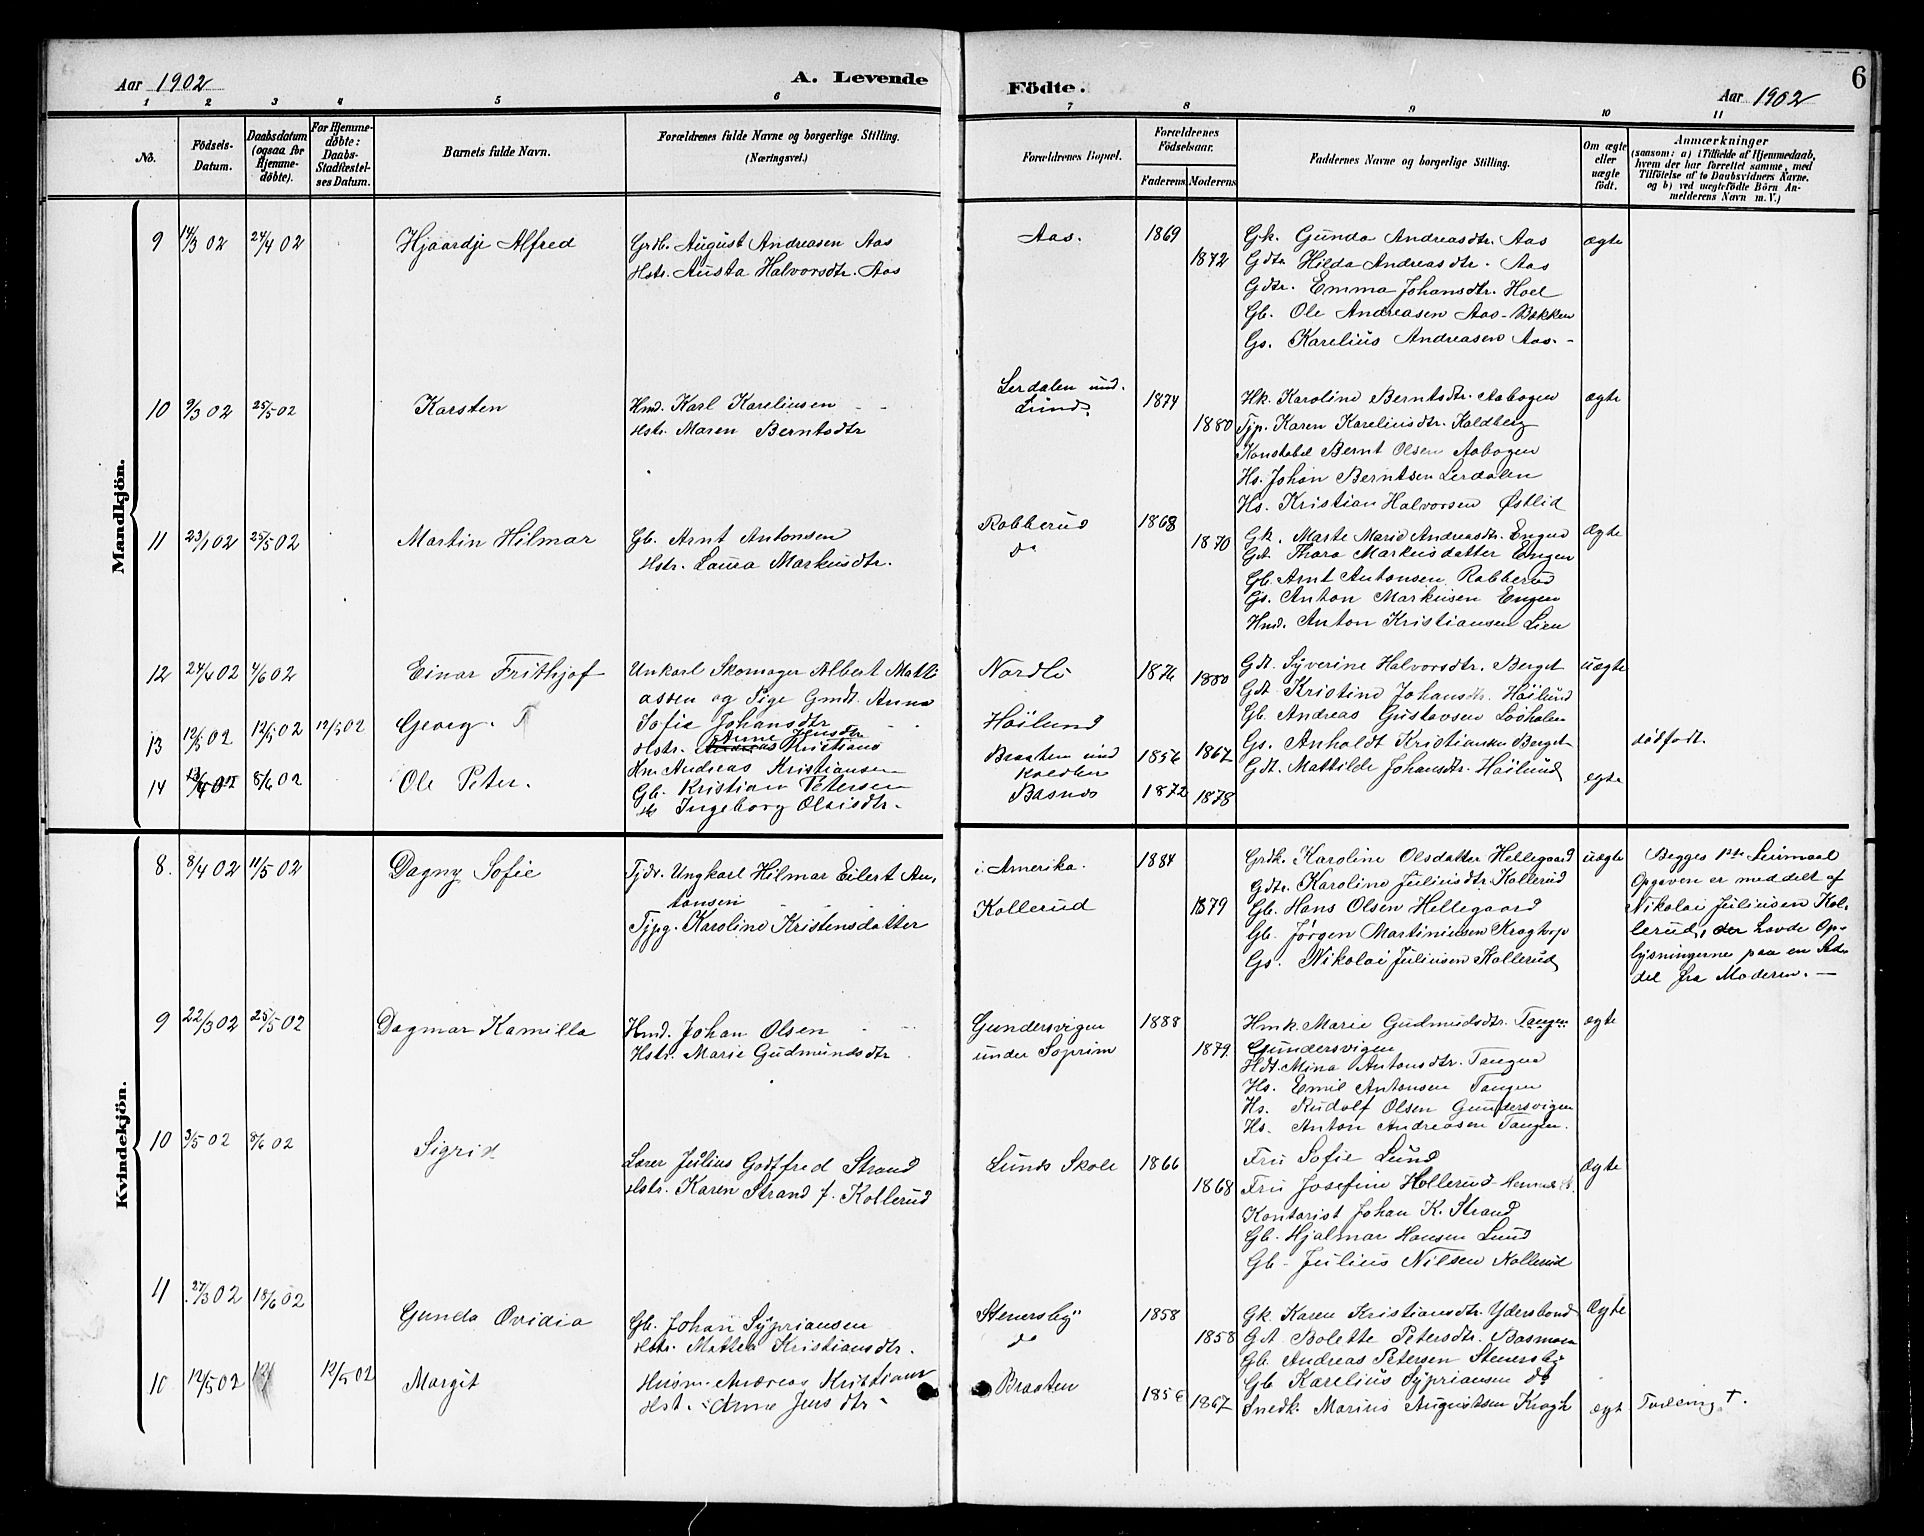 Aar 1902
A. Levende
Födte.
Aar 1902
6
1 2 3 4 5 6 7 8 9 10 11
No.
Födsels-Datum.
Daabsdatum (ogsaa for Hjemme-döbte).
For Hjemme-döbte: Daabs-Stadfæstel-ses Datum.
Barnets fulde Navn.
Forældrenes fulde Navne og borgerlige Stilling. (Næringsvei.)
Forældrenes Bopæl.
Forældrenes Födselsaar.
Faderens Moderens
Faddernes Navne og borgerlige Stilling.
Om ægte eller uægte födt.
Anmærkninger
(saasom: a) i Tilfælde af Hjemmedaab,
hvem der har forrettet samme, med
Tilföielse af to Daabsvidners Navne.
og b) ved uægtefödte Börn An-
melderens Navn m. V.)
Mandkjön.
9 14/3 02 24/4 02 Hjaardje Alfred
Grdb. August Andreasen Aas
Hstr. Austa Halvorsdtr. Aas
Aas. 1869 1872
Gk. Gunda Andreasdtr. Aas
Gdtr Hilda Andreasdtr. Aas
Gdtr. Emma Johansdtr. Hoel
Gb. Ole Andreasen Aas-Bakken
Gs. Karelius Andreasen Aas.-
ægte
10 9/3 02 25/5 02 Karsten
Hmd. Karl Kareliusen
Hstr. Maren Berntsdtr
Lerdalen und.
Lund. 1874 1880
Hk. Karoline Berntsdtr. Aabogen
Tjp. Karen Kareliusdtr. Koldberg
Konstabel Bernt Olsen Aabogen
Hs. Johan Berntsen Lerdalen
Hs. Kristian Halvorsen Østlid
ægte
11 23/1 02 25/5 02 Martin Hilmar
Gb. Arnt Antonsen
Hstr. Laura Markusdtr.
Robberud
do 1868 1870
Gk. Marte Marie Andreasdtr. Engen
Gdt. Thora Markusdatter Engen
Gb. Arnt Antonsen Robberud
Gs. Anton Markusen Engen
Hmd. Anton Kristiansen Lien
Ægte
12 24/4 02 4/6 02 Einar Frithjof
Unkarl Skomager Albert Matti
assen og Pige Gmdt. Anna
Sofie Johansdtr
Nordli
Høilund 1876 1880
Gdt. Syverine Halvorsdtr. Berget
Gdt Kristine Johansdtr. Høilund
Gb. Andreas Gustavsen Losholen
Gs. Anholdt Kristiansen Berget
Gdt. Mathilde Johansdtr. Høilund
uægte
13 12/5 02 12/5 02 12/5 02 Georg.
Anne Jensdtr
Hstr. Kristians
Hm Andreas Kristiansen
Braaten und
1856 1867
dødfødt.
14 13/4 02 8/6 02 Ole Peter.
Gb. Kristian Petersen
Hs Ingeborg Olsisdtr.
Basnes 1872 1878
ægte
Kvindekjön.
8. 8/4 02 11/5 02 Dagny Sofie
Tjdr. Ungkarl Hilmar Eilert An,
tonsen
Tjpg. Karoline Kristensdatter
i Amerika.
Kollerud 1884 1879
Grdk. Karoline Olsdatter Hellegaard
Gdtr. Karoline Juliusdtr. Kollerud
Gb. Hans Olsen Hellegaard
Gb. Jørgen Martiniusen Kragtorp
Gs. Nikolai Juliusen Kollerud
uægte
Begges 1ste Leiermaal
Opgaven er meddelt af
Nikolai Juliusen Kol-
lerud, der havde Op-
lysningerne paa en Sed-
del fra Moderen. —
9 22/3 02 25/5 02 Dagmar Kamilla
Hmd. Johan Olsen
Hstr. Marie Gudmundsdtr
Gundersvigen
under Soprim 1888 1879.
Hmk. Marie Gudmudsdtr. Tangen
Gundersvigen
Hdt. Mina Antonsdtr. Tangen
Hs. Emil Antonsen Tangen
Hs. Rudolf Olsen Gundersvigen
Hs. Anton Andreasen Tangen.
ægte
10 3/5 02 8/6 02 Sigrid
Lærer Julius Godtfred Strand
Hstr. Karen Strand f. Kollerud
Lunds Skole 1866 1868
Fru Sofie Lund
Fru Josefine Hollerud
Kontorist Johan K. Strand
Gb. Hjalmar Hansen Lund
Gb. Julius Nilsen Kollerud
Ægte
11 27/3 02 18/6 02 Gunda Ovidia
Gb. Johan Sypriansen
Hstr. Mathea Kristiansdtr.
Stenersby
do 1858 1858
Gk. Karen Kristiansdtr. Ydersbond
Gdt Bolette Petersdtr. Basmoen
Gb. Andreas Petersen Stenersby
Gb Karelius Sypriansen do
Snedk. Marius Augustsen Krogh
Ægte
10 12/5 02 12/5 02 Margit
Husm. Andreas Kristians
Hst. - Anne Jensdtr -
Braaten 1856 1867
ægt
Tvilling †.